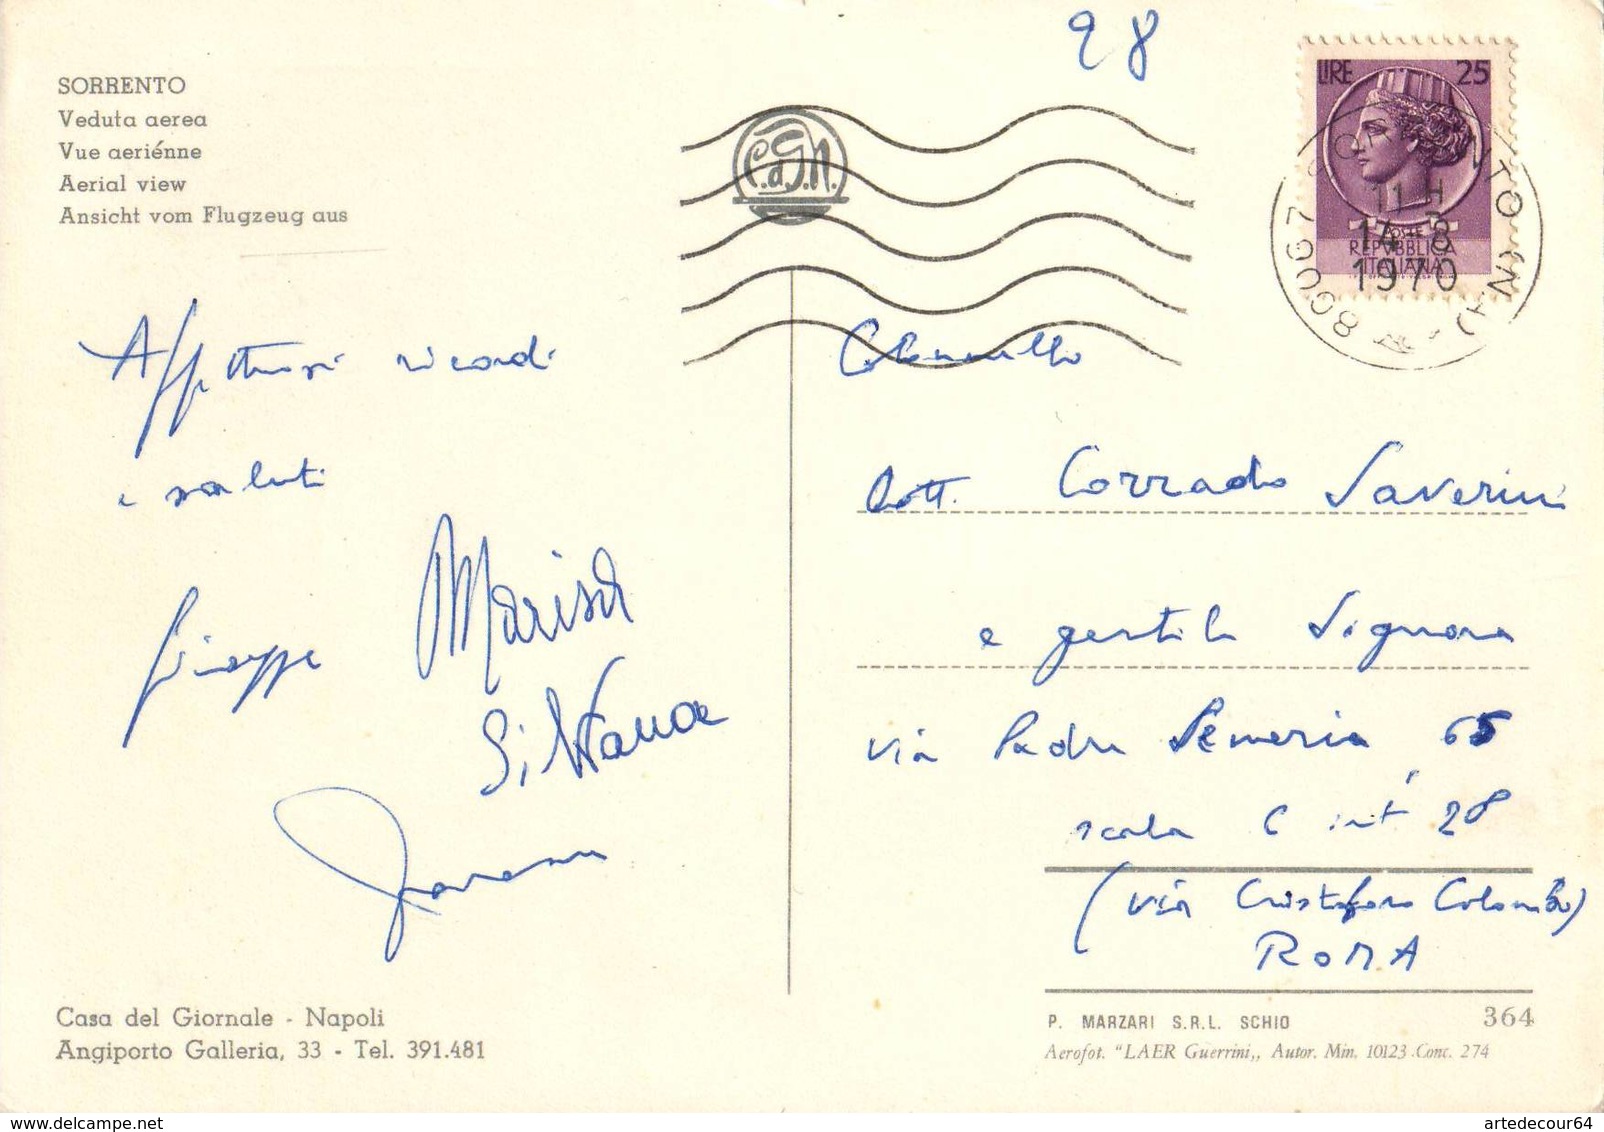 28
SORRENTO
Veduta aerea
Vue aeriénne
Aerial view
Ansicht vom Flugzeug aus
C.d.G.N.
LIRE 25
POSTE
REPVBBLICA
ITALIANA
80067 SORRENTO (NA)
11 H
14-8
1970
Affettuosi ricordi
e saluti
Giuseppe
Marisa
Silvana
Dott. Corrado Saverini
e gentile Signora
via Padre Semeria 65
scala C int 28
(via Cristoforo Colombo)
ROMA
Casa del Giornale - Napoli
Angiporto Galleria, 33 - Tel. 391.481
P. MARZARI S.R.L. SCHIO 364
Aerofot. "LAER Guerrini„ Autor. Min. 10123 Conc. 274
artedecour64